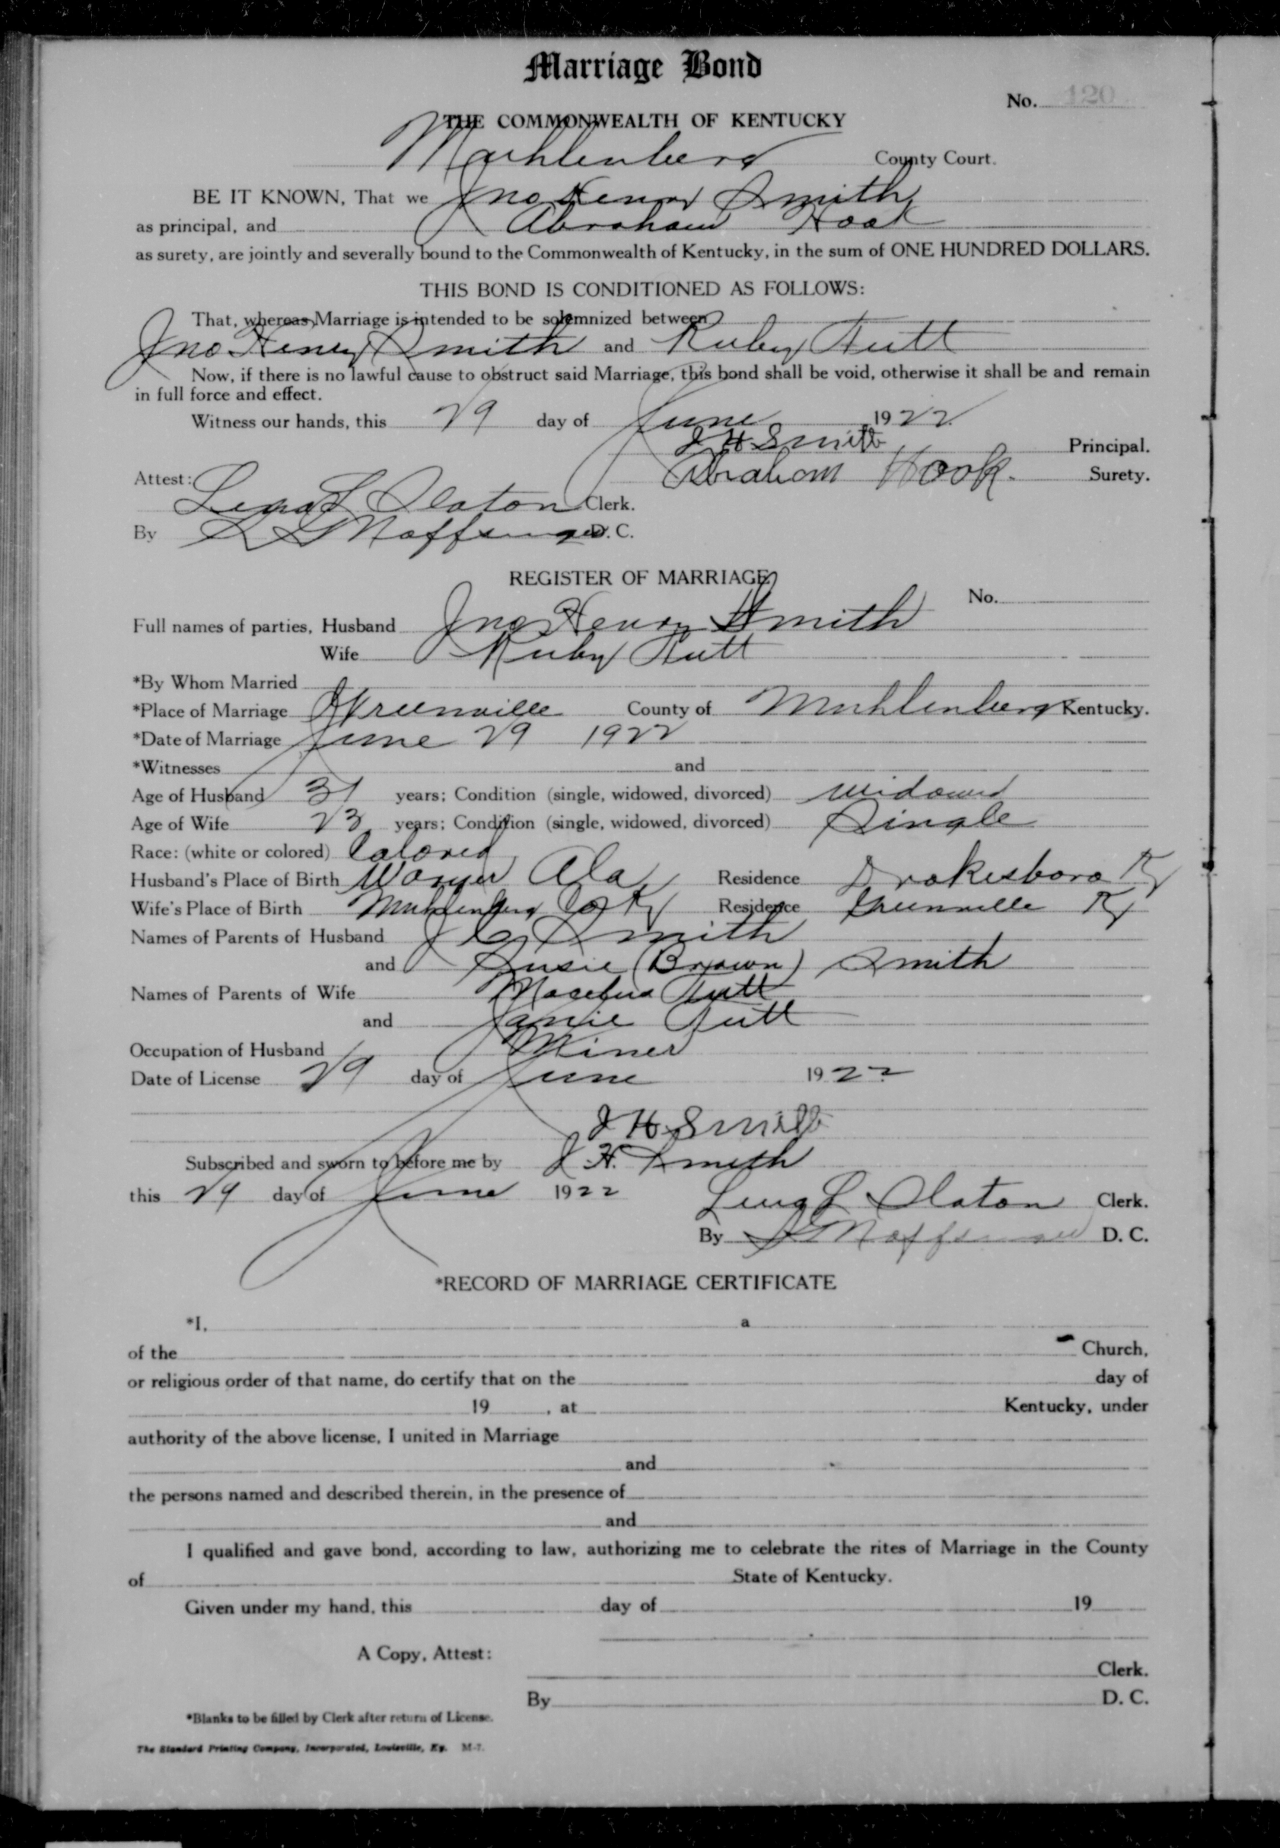 Marriage Bond
No. 120
THE COMMONWEALTH OF KENTUCKY
Muhlenberg County Court.
BE IT KNOWN, That we Jno Henry Smith
as principal, and Abraham Hook
as surety, are jointly and severally bound to the Commonwealth of Kentucky, in the sum of ONE HUNDRED DOLLARS.
THIS BOND IS CONDITIONED AS FOLLOWS:
That, whereas, Marriage is intended to be solemnized between
Jno Henry Smith and Ruby Tutt
Now, if there is no lawful cause to obstruct said Marriage, this bond shall be void, otherwise it shall be and remain
in full force and effect.
Witness our hands, this 29 day of June 1922
J H Smith Principal.
Abraham Hook. Surety.
Attest:
Lena L Slaton Clerk.
By D. C.
REGISTER OF MARRIAGE
No.
Full names of parties, Husband Jno Henry Smith
Wife Ruby Tutt
*By Whom Married
*Place of Marriage Greenville County of Muhlenberg Kentucky.
*Date of Marriage June 29 1922
*Witnesses and
Age of Husband 31 years; Condition (single, widowed, divorced) widowed
Age of Wife 23 years; Condition (single, widowed, divorced) Single
Race: (white or colored) Colored
Husband's Place of Birth Ala Residence Drakesboro Ky
Wife's Place of Birth Muhlenberg Co Ky Residence Greenville Ky
Names of Parents of Husband J C Smith
and Susie (Brown) Smith
Names of Parents of Wife Tutt
and Janie Tutt
Occupation of Husband Miner
Date of License 29 day of June 1922
J H Smith
Subscribed and sworn to before me by J. H. Smith
this 29 day of June 1922 Lena L Slaton Clerk.
By D. C.
*RECORD OF MARRIAGE CERTIFICATE
*I, a
of the Church,
or religious order of that name, do certify that on the day of
19 , at Kentucky, under
authority of the above license, I united in Marriage
and
the persons named and described therein, in the presence of
and
I qualified and gave bond, according to law, authorizing me to celebrate the rites of Marriage in the County
of State of Kentucky.
Given under my hand, this day of 19
A Copy, Attest:
Clerk.
By D. C.
*Blanks to be filled by Clerk after return of License.
The Standard Printing Company, Incorporated, Louisville, Ky. M-7.